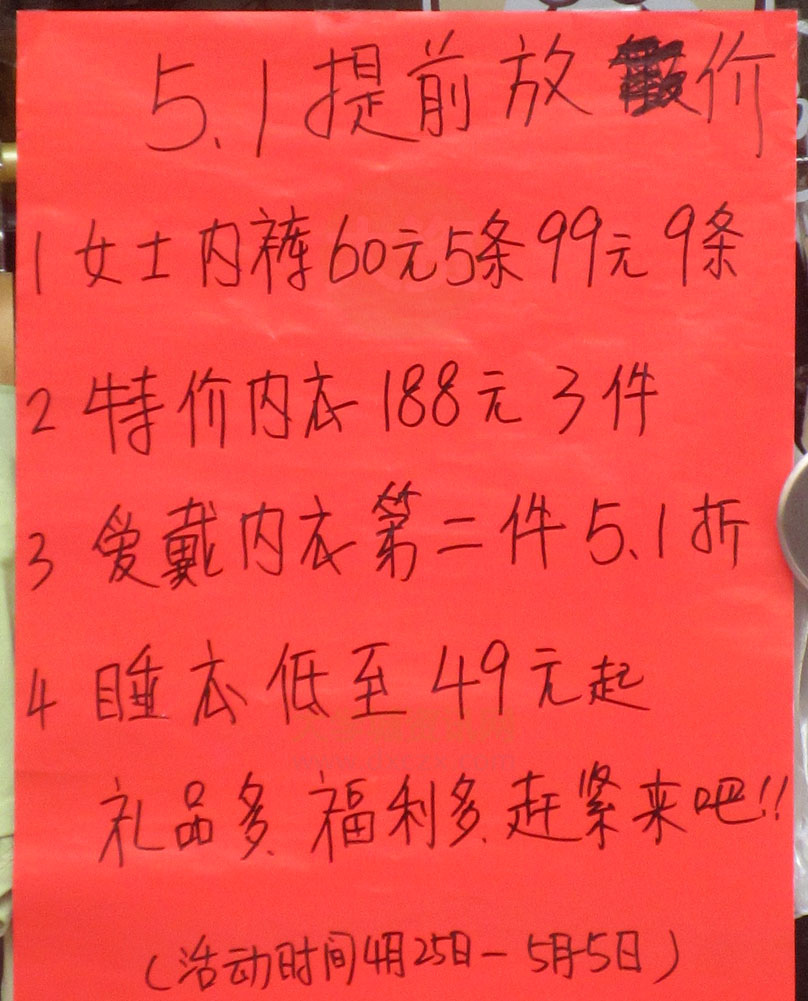 5.1提前放价
1 女士内裤60元5条99元9条
2 特价内衣188元3件
3 爱戴内衣第二件5.1折
4 睡衣低至49元起
礼品多、福利多、赶紧来吧!!
(活动时间4月25日-5月5日)